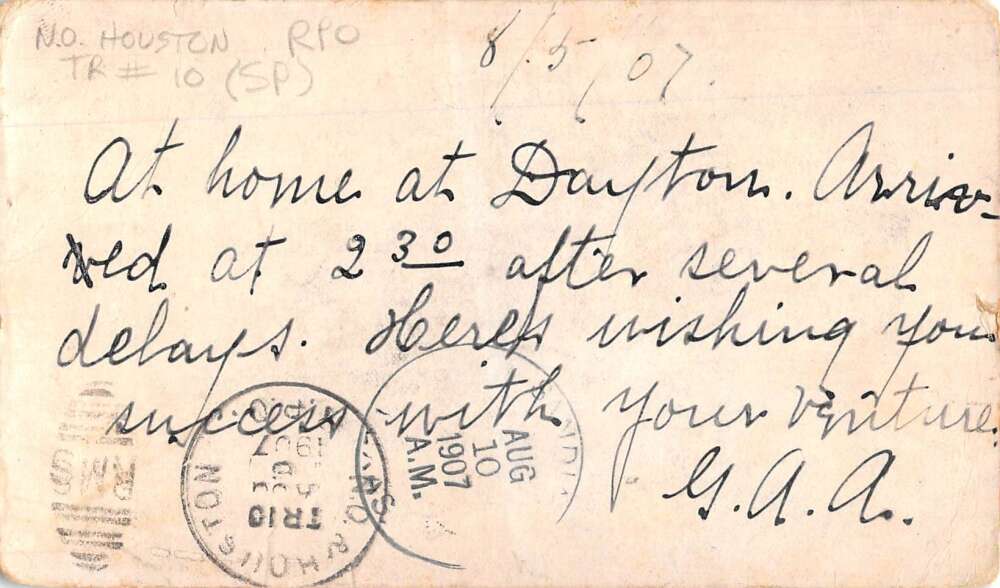 N.O. HOUSTON RPO
TR # 10 (SP)
8/5/07.
At home at Dayton. Arriv-
ved at 2 30 after several
delays. Here's wishing you
success with your venture.
G. A. A.
RMS
HOUSTON
R.P.O.
TR10
1907
AUG
10
1907
A.M.